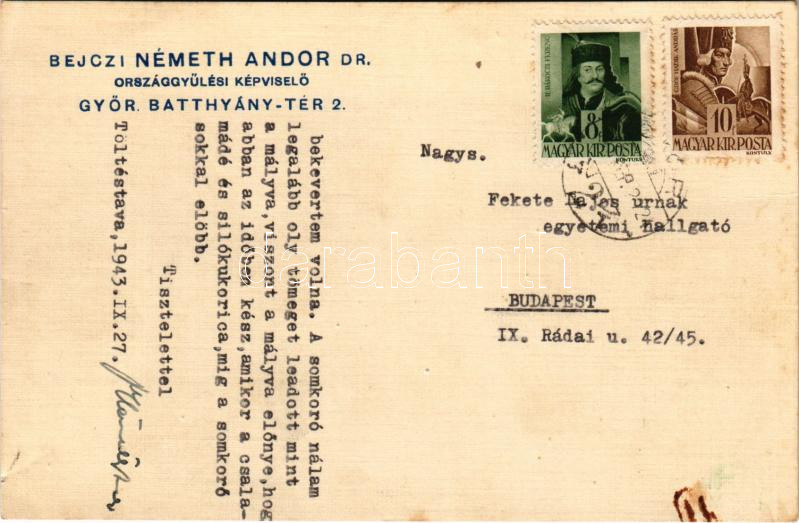 BEJCZI NÉMETH ANDOR DR.
ORSZÁGGYÜLÉSI KÉPVISELŐ
GYŐR. BATTHYÁNY-TÉR 2.
bekevertem volna. A somkoró nálam
legalább oly tömeget leadott mint
a mályva,viszont a mályva előnye,hog
abban az időben kész,amikor a csala-
mádé és silókukorica,mig a somkoró
sokkal előbb.
Tisztelettel
Töltéstava,1943.IX.27.
II. RÁKÓCZI FERENC
8
MAGYAR KIR. POSTA
KONTULY
10
MAGYAR KIR. POSTA
KONTULY
Nagys.
Fekete Lajos urnak
egyetemi hallgató
BUDAPEST
IX. Rádai u. 42/45.
darabanth